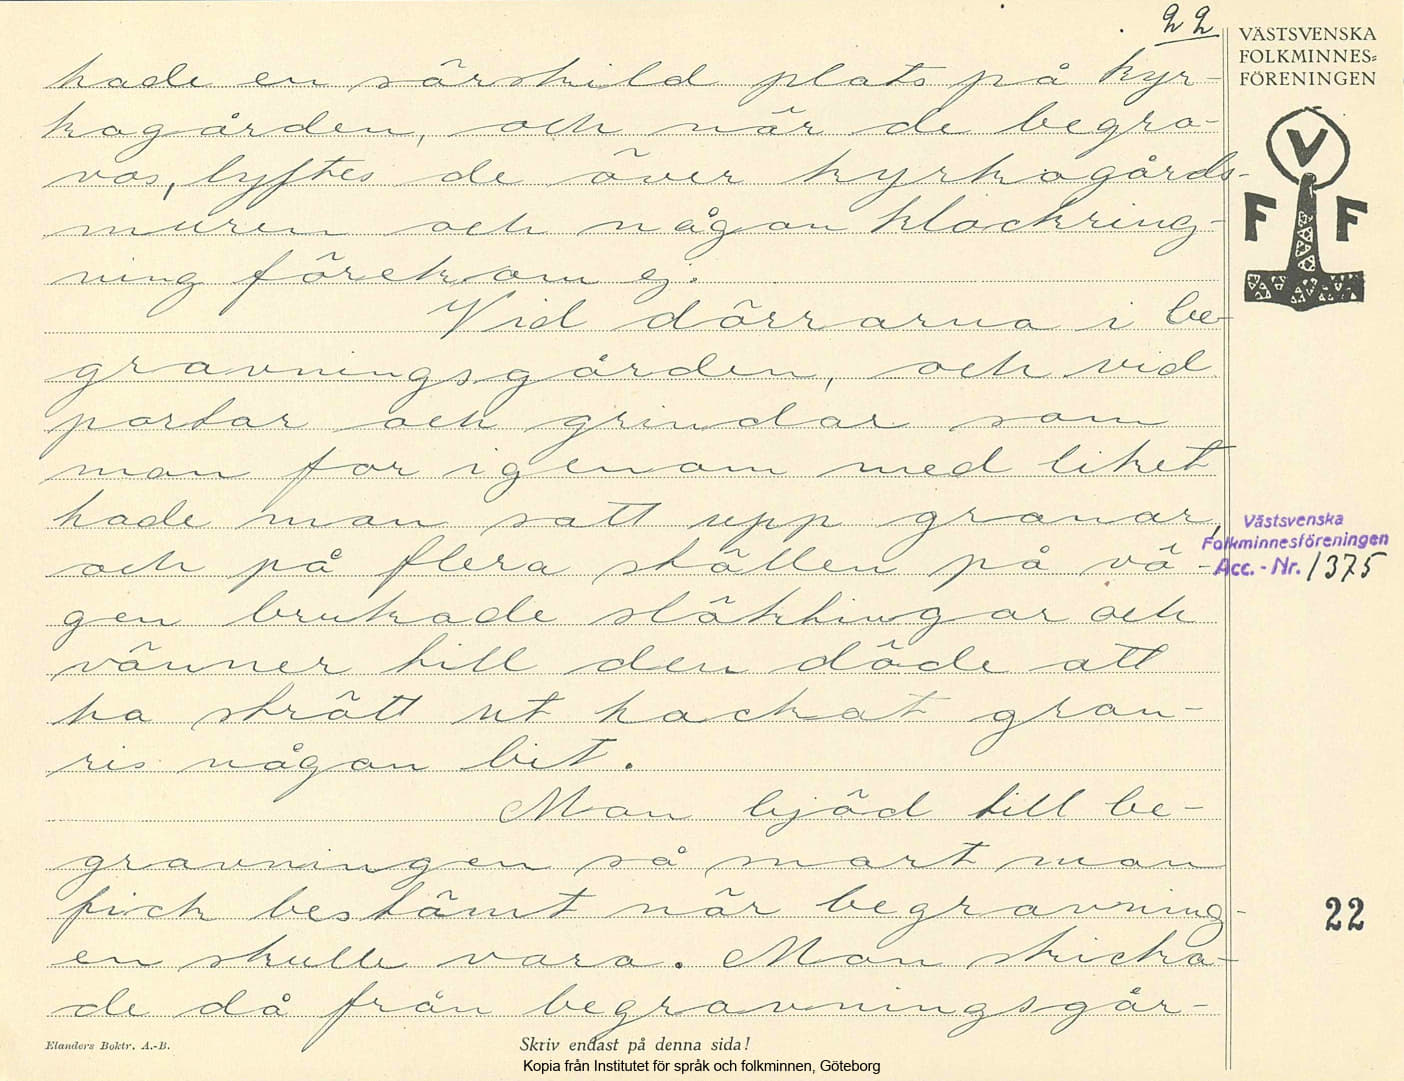 22
VÄSTSVENSKA
FOLKMINNES=
FÖRENINGEN
V
F F
hade en särskild plats på kyr-
kogården, och när de begra-
vos, lyftes de över kyrkogårds-
muren och någon klockring-
ning förekom ej.
Vid dörrarna i be-
gravningsgården, och vid
portar och grindar som
man for igenom med liket
hade man satt upp granar,
och på flera ställen på vä-
gen brukade släktingar och
vänner till den döde att
ha strött ut hackat gran-
ris någon bit.
Man bjöd till be-
gravningen så snart man
fick bestämt när begravning-
en skulle vara. Man skicka-
de då från begravningsgår-
Västsvenska
Folkminnesföreningen
Acc. - Nr. 1375
22
Elanders Boktr. A.-B.
Skriv endast på denna sida!
Kopia från Institutet för språk och folkminnen, Göteborg